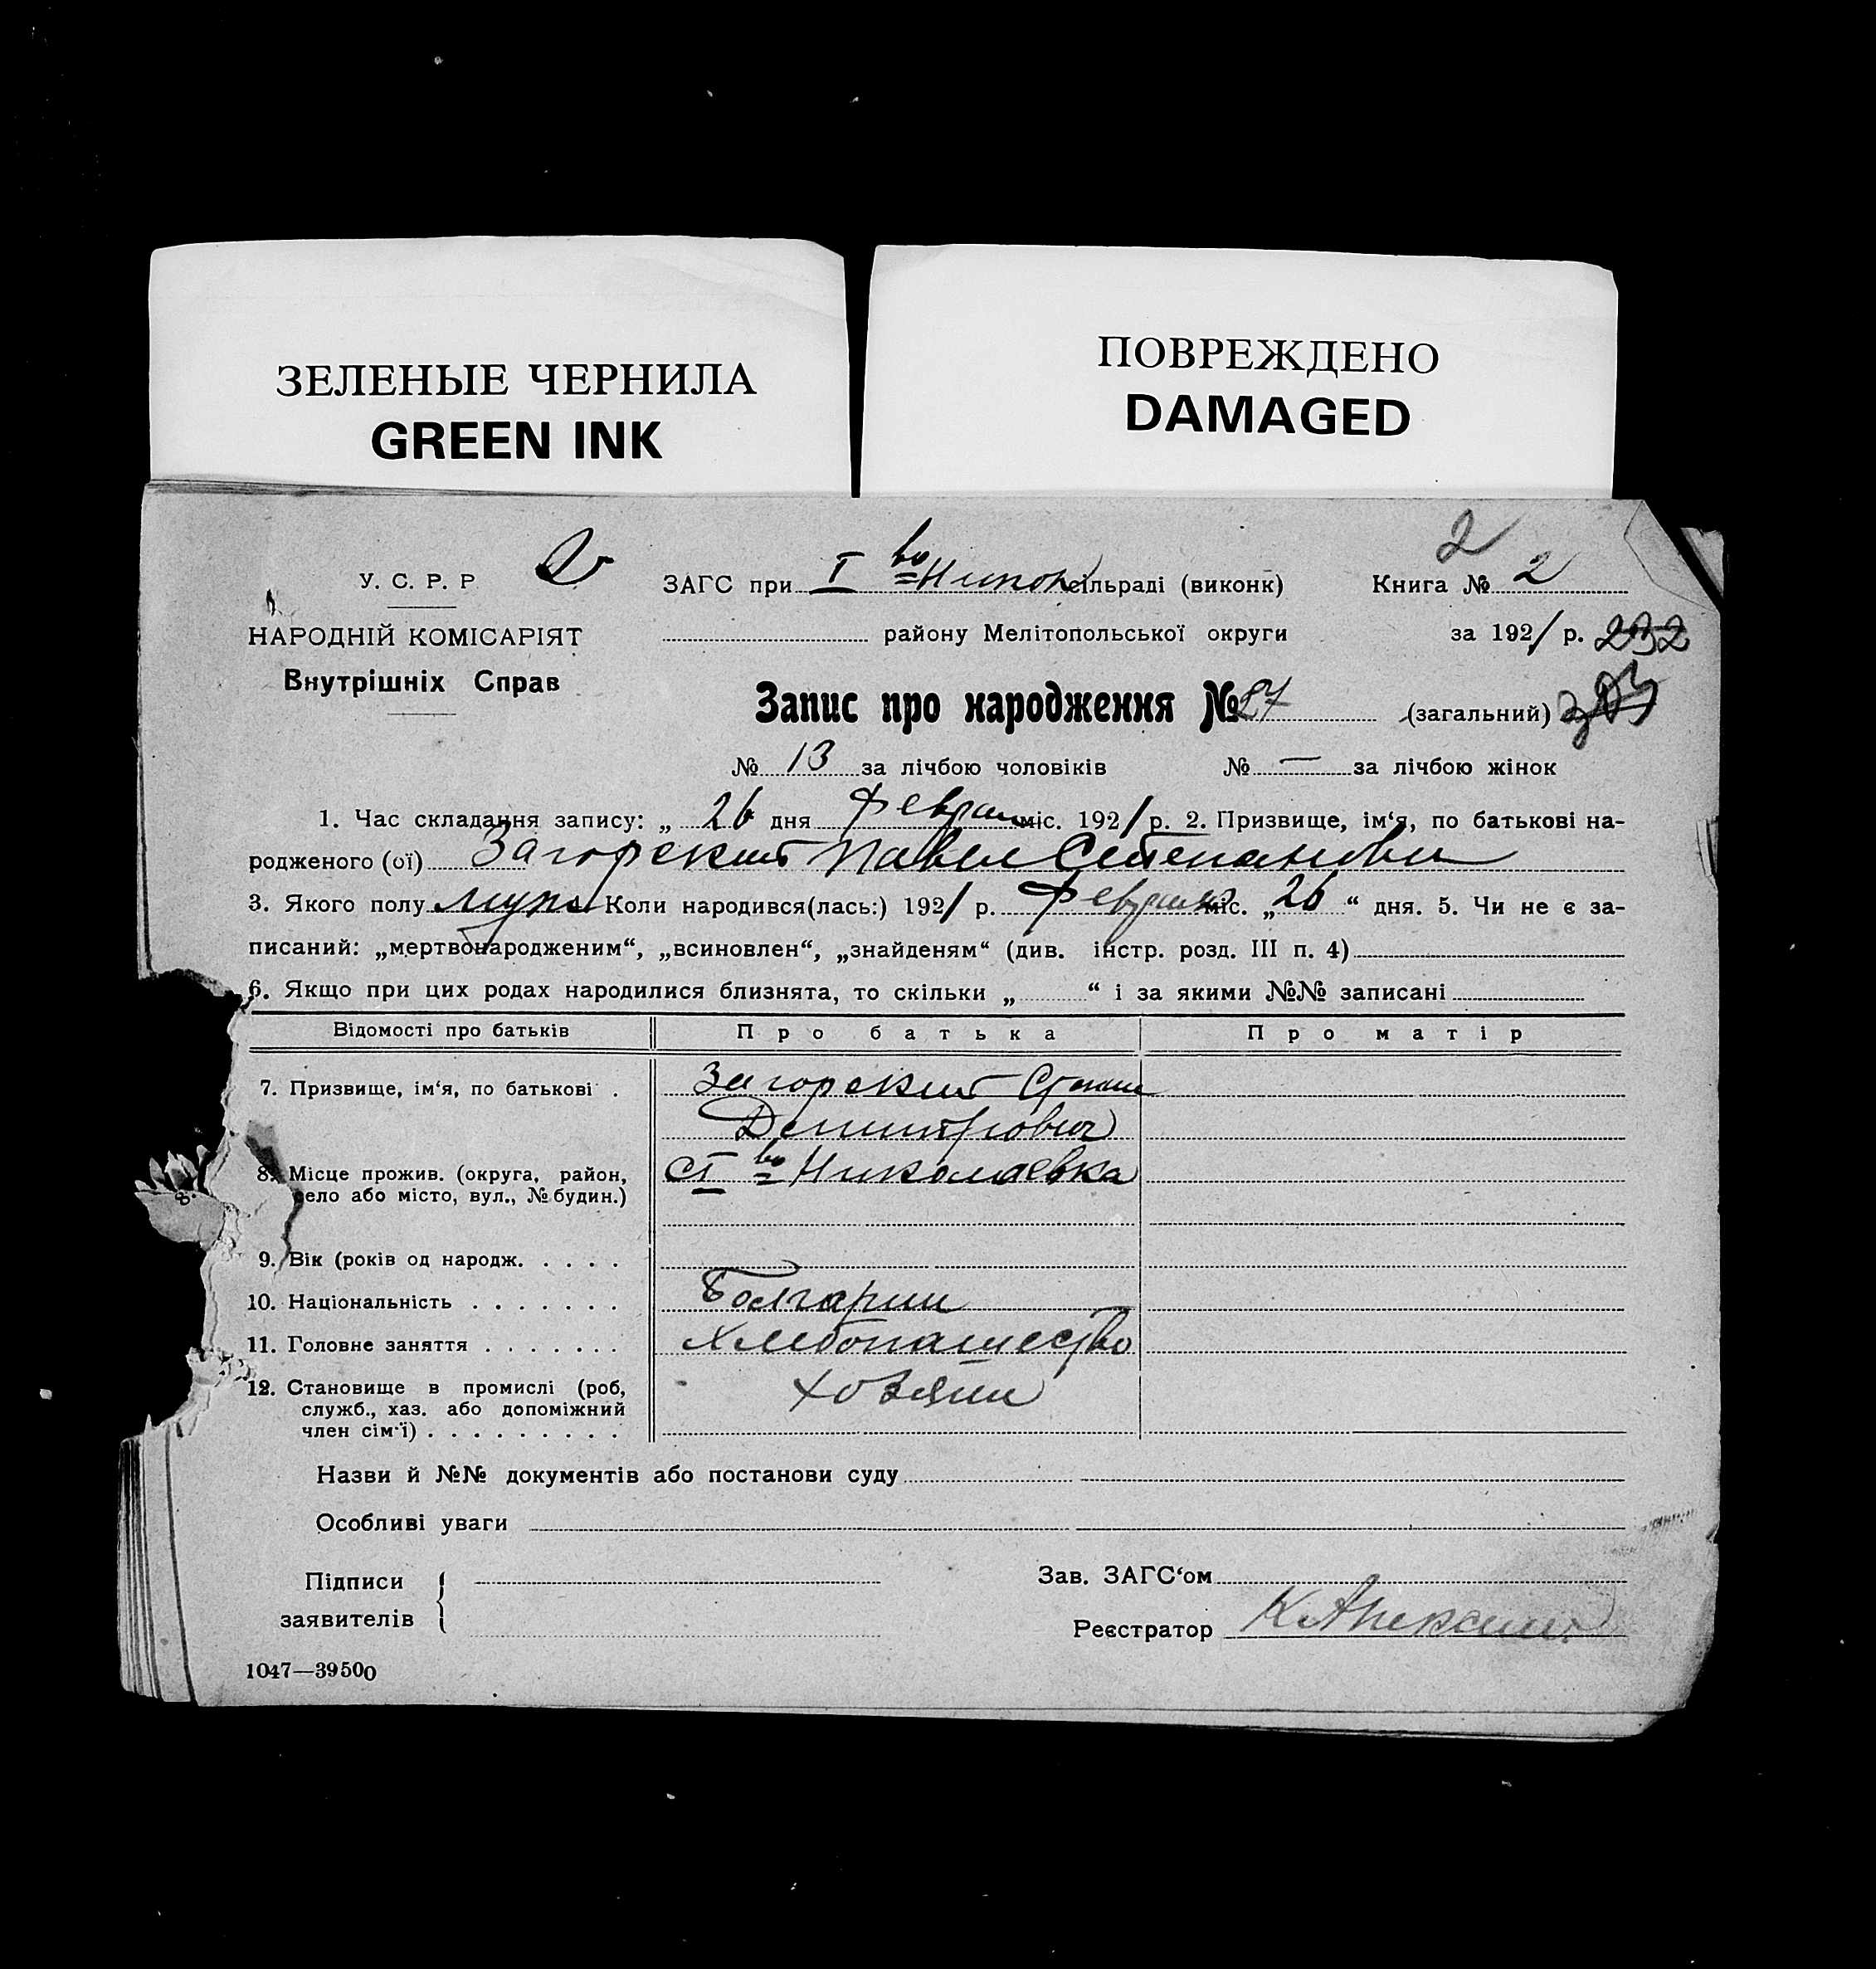 ЗЕЛЕНЫЕ ЧЕРНИЛА
GREEN INK
ПОВРЕЖДЕНО
DAMAGED
2
У. С. Р. Р.
НАРОДНІЙ КОМІСАРІЯТ
Внутрішніх Справ
ЗАГС при I во Никол сільраді (виконк) Книга № 2
району Мелітопольської округи за 1921 р. 232
Запис про народження № 27 (загальний)
№ 13 за лічбою чоловіків № — за лічбою жінок
1. Час складання запису: „ 26 дня Феврал міс. 1921 р. 2. Призвище, ім‘я, по батькові на-
родженого (ої) Загорский Павел Степанович
3. Якого полу муж Коли народився(лась:) 1921 р. Февраля міс. „ 26 “ дня. 5. Чи не є за-
писаний: „мертвонародженим“, „всиновлен“, „знайденям“ (див. інстр. розд. III п. 4)
6. Якщо при цих родах народилися близнята, то скільки „ “ і за якими №№ записані
Відомості про батьків Про батька Про матір
7. Призвище, ім‘я, по батькові . Загорский Степан
Демитрович
8. Місце прожив. (округа, район, село або місто, вул., № будин.) С I во Николаевка
8.
9. Вік (років од народж. . . . .
10. Національність . . . . . . . Болгарин
11. Головне заняття . . . . . . . хлебопашество
12. Становище в промислі (роб, хозяин
служб., хаз. або допоміжний
член сім‘ї) . . . . . . . . .
Назви й №№ документів або постанови суду
Особливі уваги
Підписи
заявителів
Зав. ЗАГС‘ом
Реєстратор
1047—39500